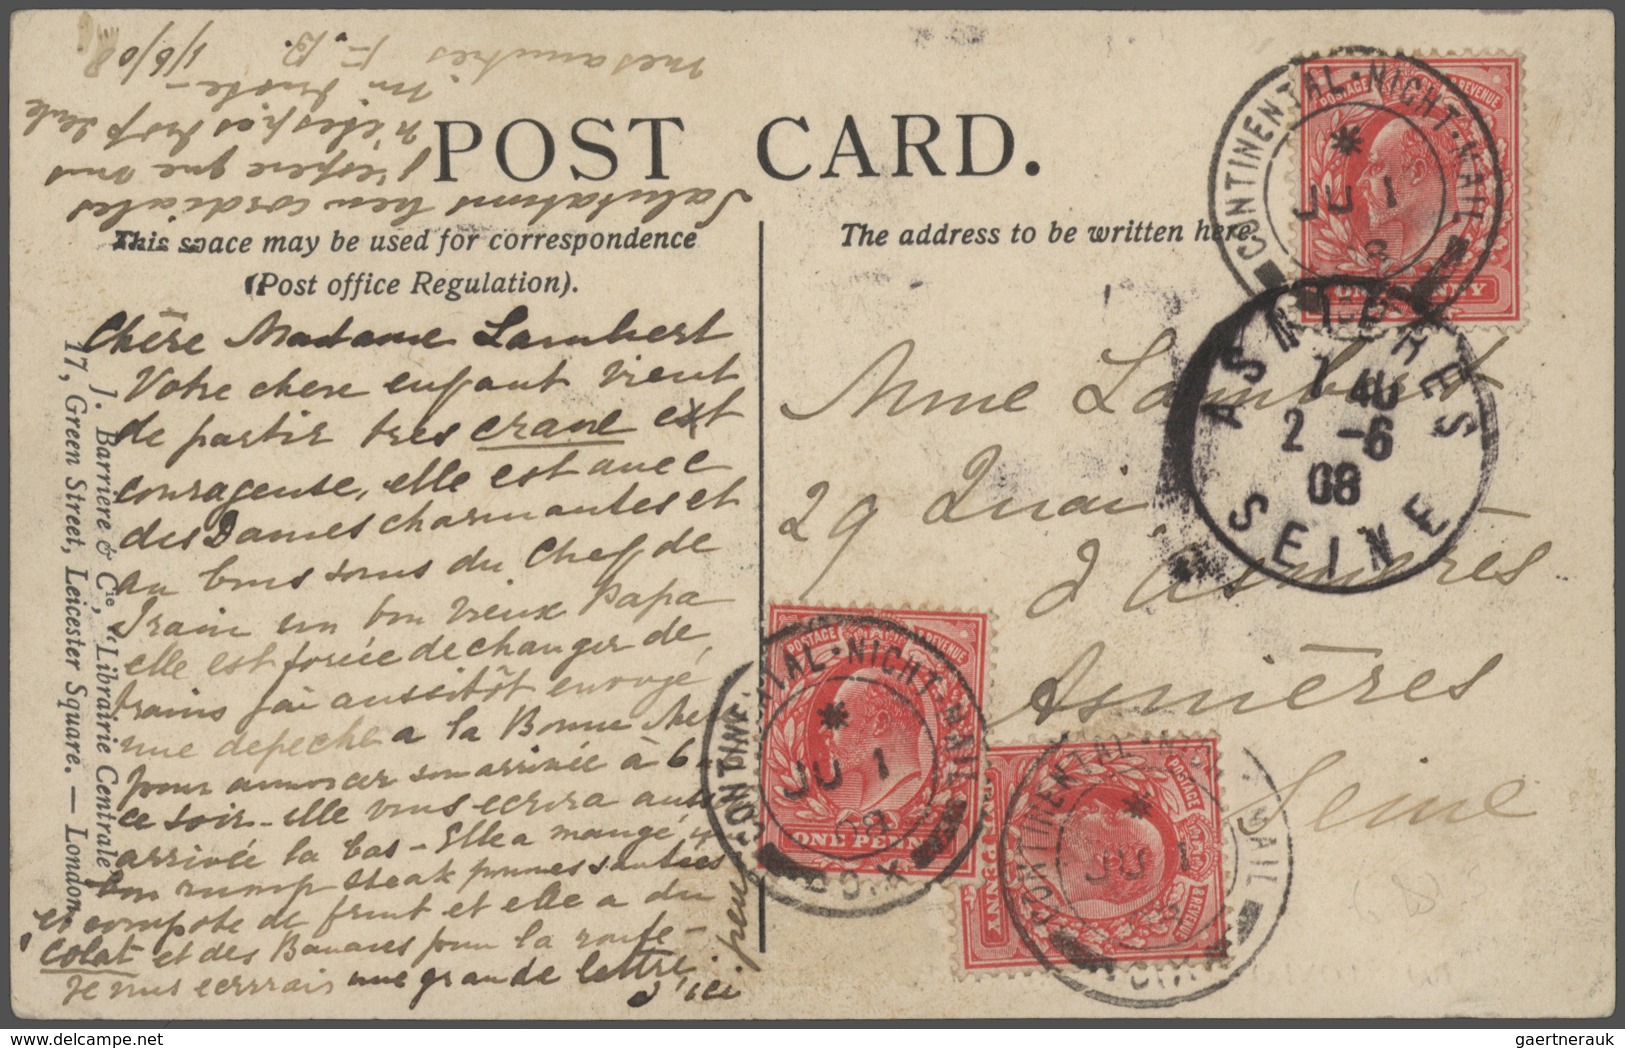 POST CARD.
This space may be used for correspondence
(Post office Regulation).
The address to be written here
Chère Madame Lambert
Votre chere enfant vient
de partir tres crane et
courageuse, elle est avec
des Dames charmantes et
au bons soins du Chef de
Train un bon vieux Papa
elle est forcée de changer de
trains j'ai aussitôt envoyé
une depeche a la Bonne
pour annoncer son arrivée à 6
ce soir - elle vous ecrira
arrivée la bas - Elle a mangé
bon rump steak pommes sautées
et compote de fruit et elle a du
colat et des Bananes pour la route -
Je vous ecrirais une grande lettre
d'ici
peu
Salutations bien cordiales
J'espère que vous
n'êtes pas trop seule
ni triste -
F. B.
1/6/08
J. Barrière & Cie, "Librairie Centrale"
17, Green Street, Leicester Square. — London.
Mme Lambert
29 Quai
d'Asnieres
Asnières
Seine
CONTINENTAL·NIGHT·MAIL
JU 1
08
POSTAGE & REVENUE
ONE PENNY
ASNIERES
7 40
2 -6
08
SEINE
CONTINENTAL·NIGHT·MAIL
JU 1
08
POSTAGE & REVENUE
ONE PENNY
CONTINENTAL·NIGHT·MAIL
JU 1
08
POSTAGE & REVENUE
ONE PENNY
gaertnerauk © Delcampe.net